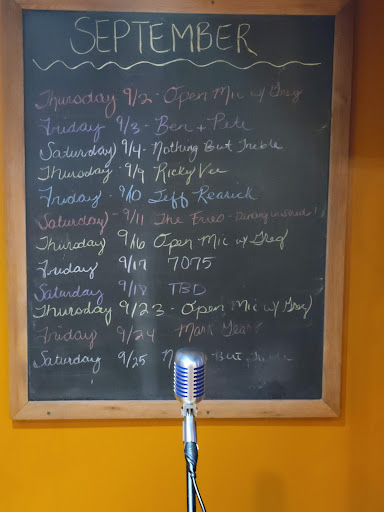 SEPTEMBER
Thursday 9/2 - Open Mic w/ Greg
Friday 9/3 - Ben + Pete
Saturday 9/4 - Nothing But Treble
Thursday 9/9 Ricky Vee
Friday - 9/10 Jeff Rearick
Saturday - 9/11 The Fries -
Thursday 9/16 Open Mic w/ Greg
Friday 9/17 7075
Saturday 9/18 TBD
Thursday 9/23 - Open Mic w/ Greg
Friday 9/24 Mark
Saturday 9/25 - But